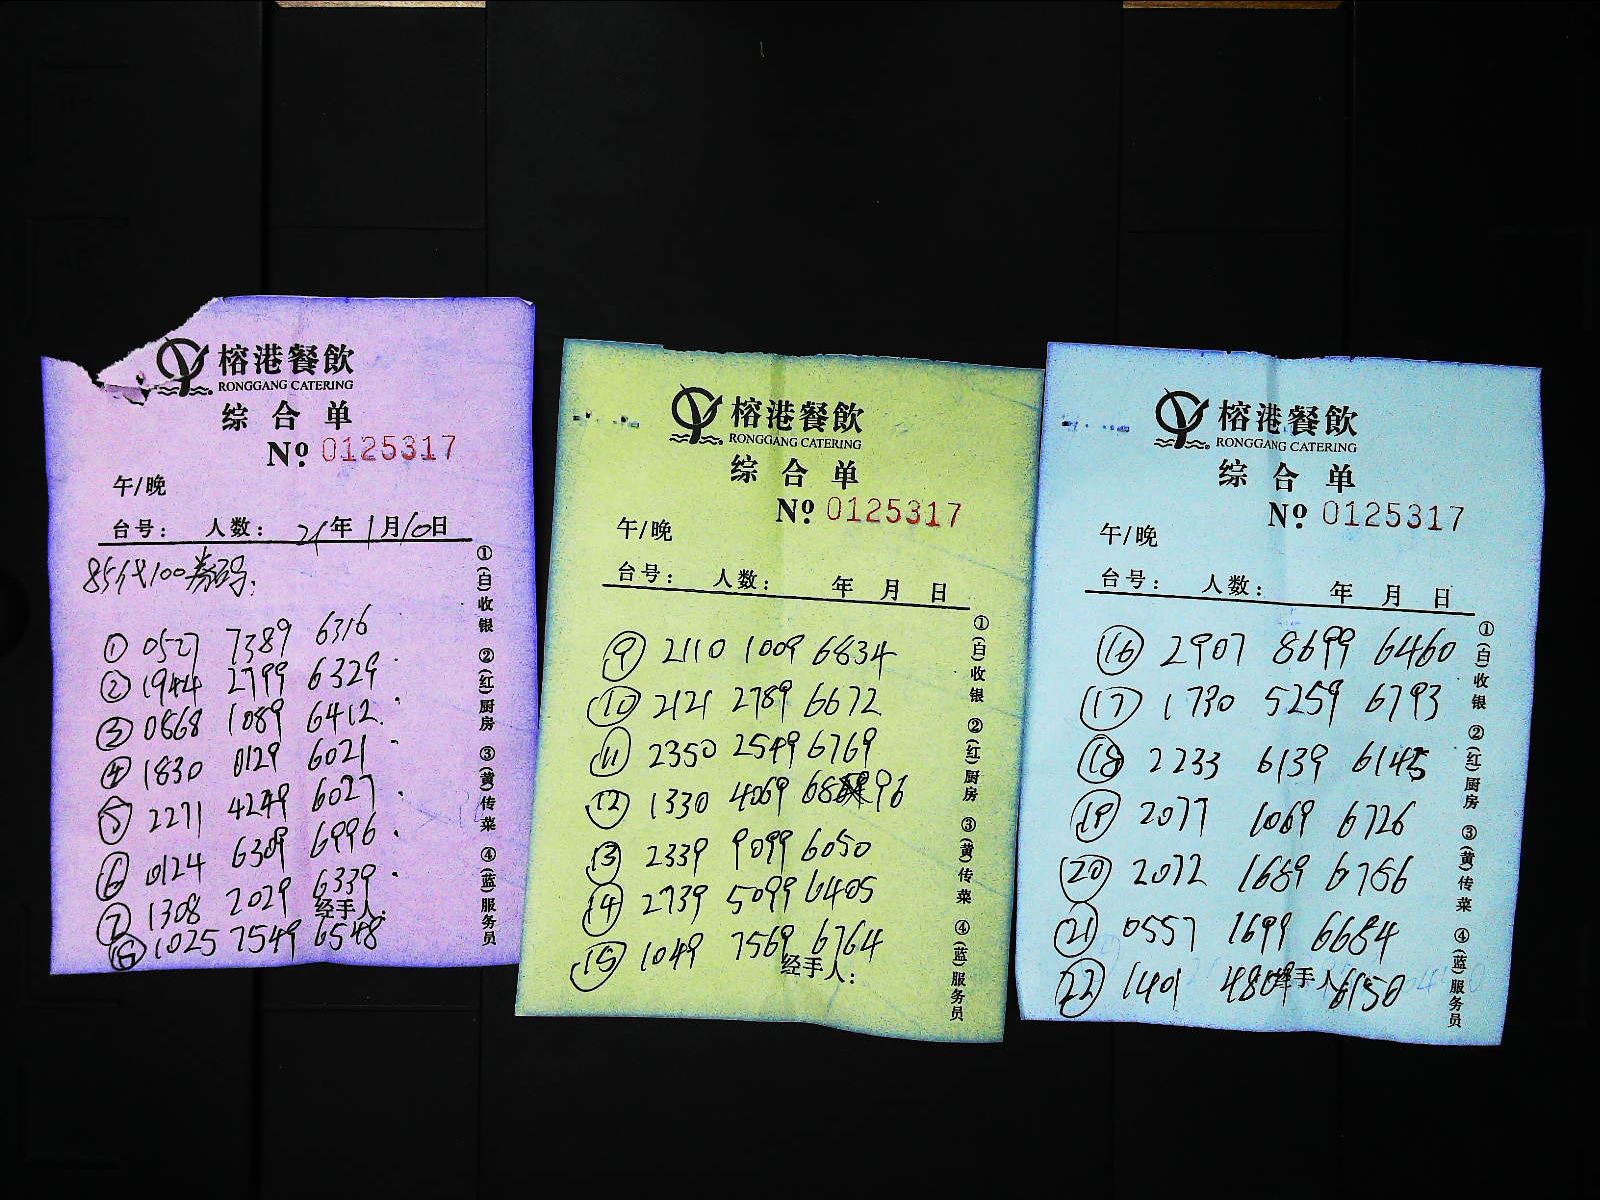 榕港餐飲
RONGGANG CATERING
综合单
Nº 0125317
午/晚
台号： 人数： 21年1月10日
85代100券码：
① 0527 7389 6316
② 1944 2799 6329
③ 0868 1089 6412
④ 1830 0129 6021
⑤ 2271 4249 6027
⑥ 0124 6309 6996
⑦ 1308 2029 6339
经手人：
⑧ 1025 7549 6548
①(白)收银 ②(红)厨房 ③(黄)传菜 ④(蓝)服务员
榕港餐飲
RONGGANG CATERING
综合单
Nº 0125317
午/晚
台号： 人数： 年 月 日
⑨ 2110 1009 6834
⑩ 2121 2789 6672
⑪ 2350 2549 6769
⑫ 1330 4069 6896
⑬ 2339 9099 6050
⑭ 2739 5099 6405
⑮ 1049 7569 6764
经手人：
①(白)收银 ②(红)厨房 ③(黄)传菜 ④(蓝)服务员
榕港餐飲
RONGGANG CATERING
综合单
Nº 0125317
午/晚
台号： 人数： 年 月 日
⑯ 2907 8699 6460
⑰ 1730 5259 6793
⑱ 2233 6139 6145
⑲ 2077 1069 6726
⑳ 2072 1689 6786
㉑ 0557 1699 6684
㉒ 1401 4809 6150
经手人
①(白)收银 ②(红)厨房 ③(黄)传菜 ④(蓝)服务员